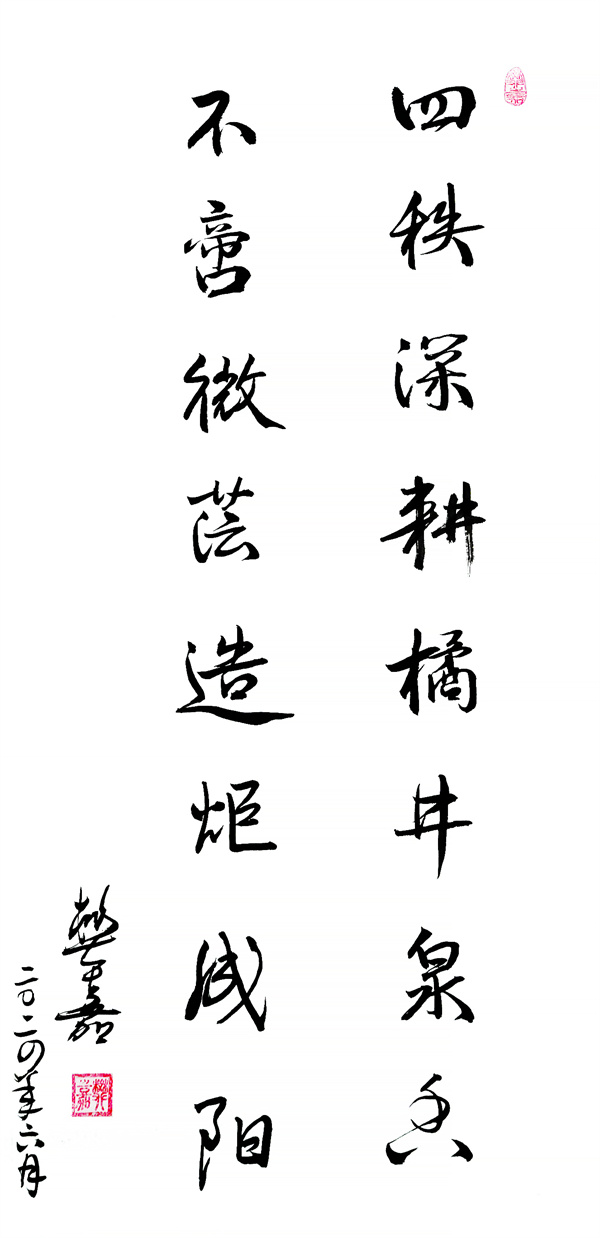 四秩深耕橘井泉香
不啻微茫造炬成阳
樊嘉
二〇二四年六月